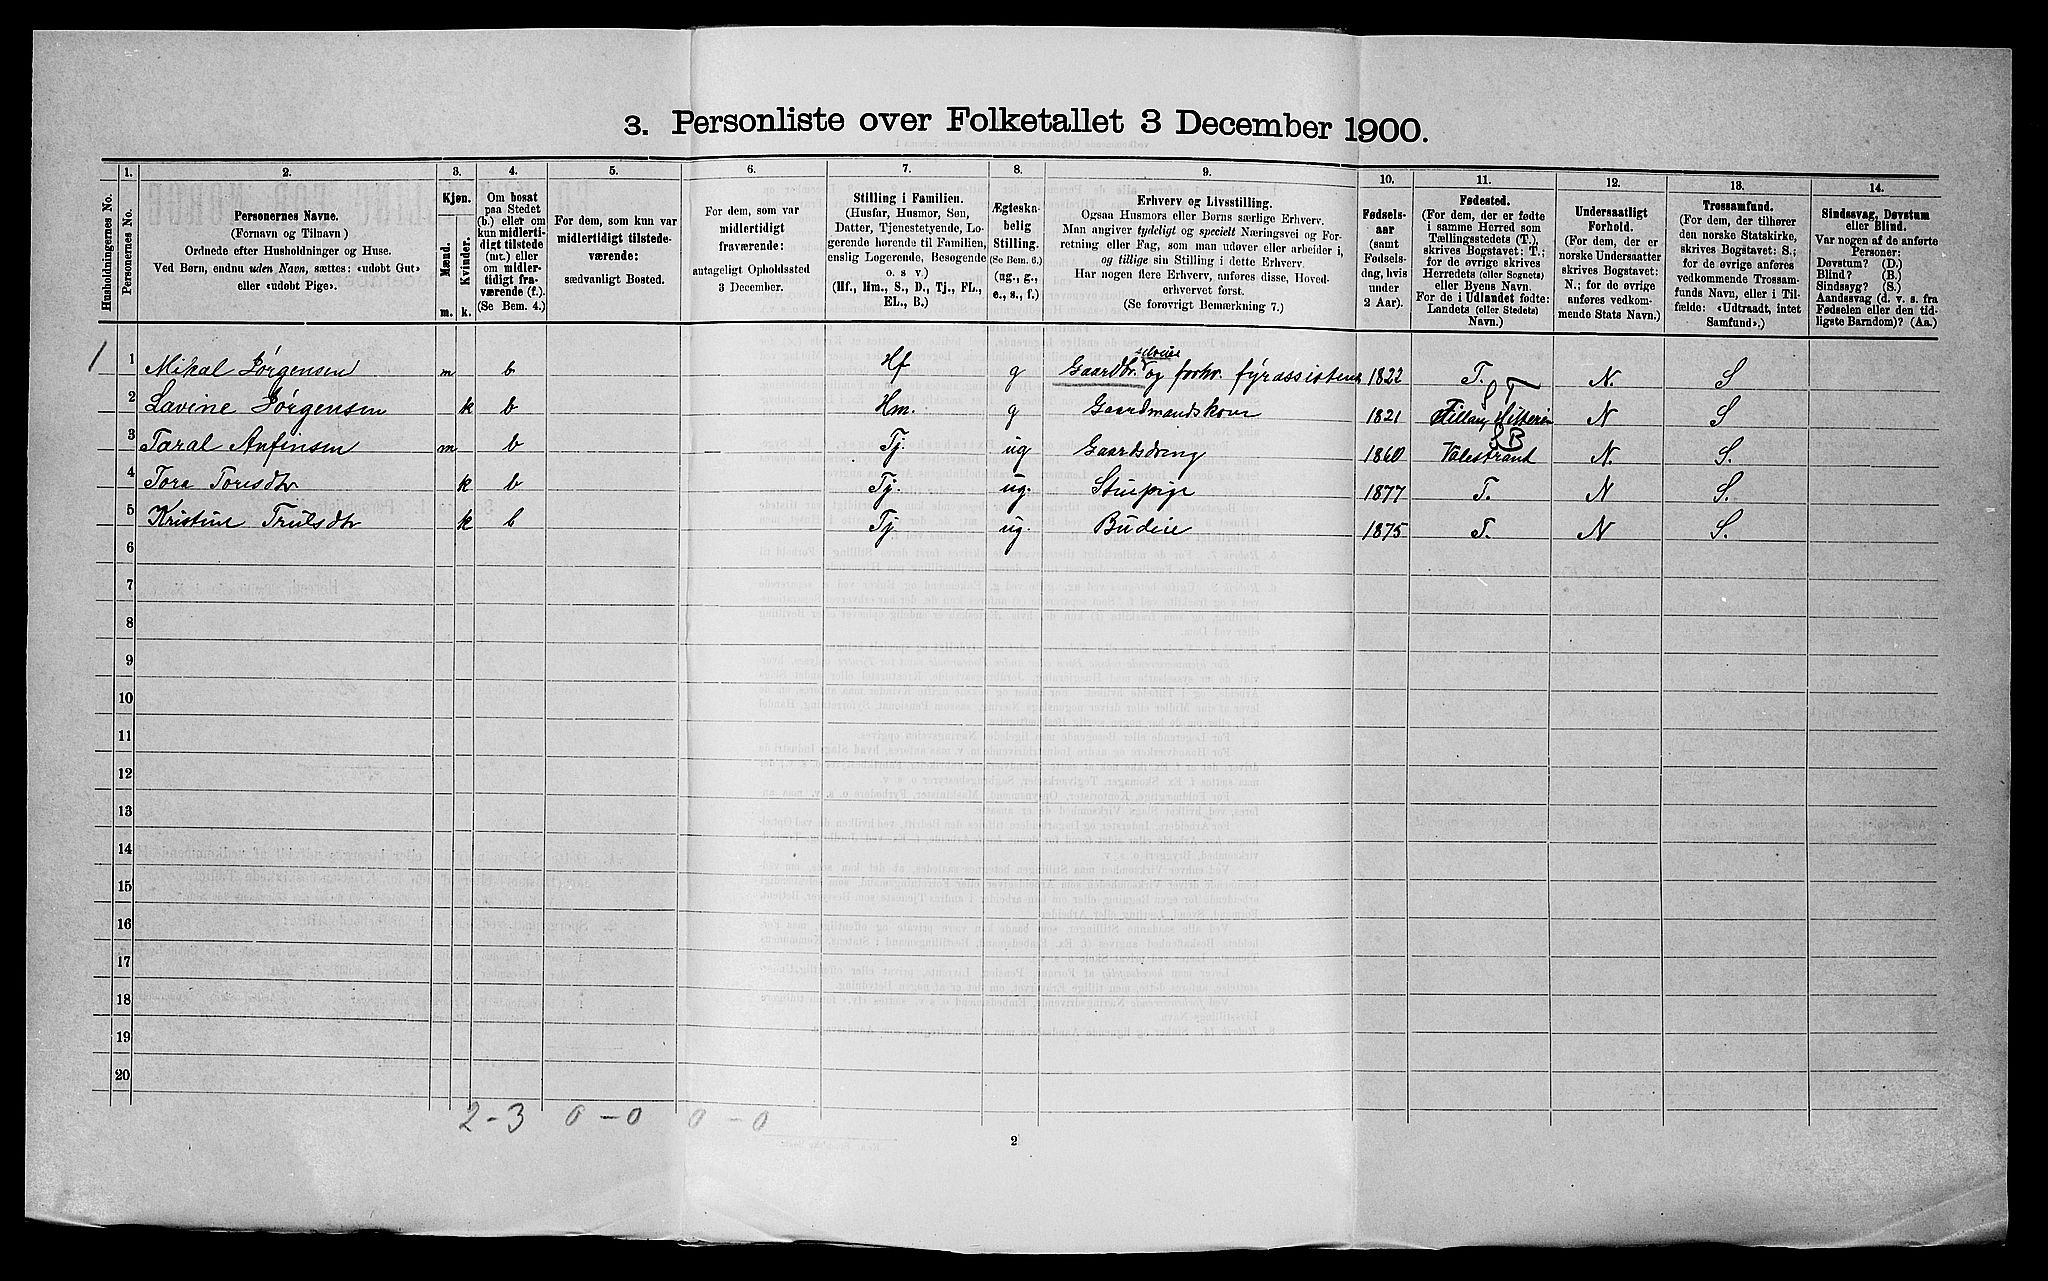 3. Personliste over Folketallet 3 December 1900.
1. 2. 3. 4. 5. 6. 7. 8. 9. 10. 11. 12. 13. 14.
Husholdningernes No.
Personernes No.
Personernes Navne.
(Fornavn og Tilnavn)
Ordnede efter Husholdninger og Huse.
Ved Børn, endnu uden Navn, sættes: «udøbt Gut»
eller «udøbt Pige».
Kjøn.
Mænd.
Kvinder.
m. k.
Om bosat
paa Stedet
(b.) eller om
kun midlerti-
digt tilstede
(mt.) eller
om midler-
tidigt fra-
værende (f.).
(Se Bem. 4.)
For dem, som kun var
midlertidigt tilstede-
værende:
sædvanligt Bosted.
For dem, som var
midlertidigt
fraværende:
antageligt Opholdssted
3 December.
Stilling i Familien.
(Husfar, Husmor, Søn,
Datter, Tjenestetyende, Lo-
gerende hørende til Familien,
enslig Logerende, Besøgende
o. s v.)
(Hf., Hm., S., D., Tj., FL.,
EL., B.)
Ægteska-
belig
Stilling.
(Se Bem. 6.)
(ug., g.,
e., s., f.)
Erhverv og Livsstilling.
Ogsaa Husmors eller Børns særlige Erhverv.
Man angiver tydeligt og specielt Næringsvei og For-
retning eller Fag, som man udøver eller arbeider i,
og tillige sin Stilling i dette Erhverv.
Har nogen flere Erhverv, anføres disse, Hoved-
erhvervet først.
(Se forøvrigt Bemærkning 7.)
Fødsels-
aar
(samt
Fødsels-
dag, hvis
under
2 Aar).
Fødested.
(For dem, der er fødte
i samme Herred som
Tællingsstedets (T.),
skrives Bogstavet: T.;
for de øvrige skrives
Herredets (eller Sognets)
eller Byens Navn.
For de i Udlandet fødte:
Landets (eller Stedets)
Navn.)
Undersaatligt
Forhold.
(For dem, der er
norske Undersaatter
skrives Bogstavet:
N.; for de øvrige
anføres vedkom-
mende Stats Navn.)
Trossamfund.
(For dem, der tilhører
den norske Statskirke,
skrives Bogstavet: S.;
for de øvrige anføres
vedkommende Trossam-
funds Navn, eller i Til-
fælde: «Udtraadt, intet
Samfund».)
Sindssvag, Døvstum
eller Blind.
Var nogen af de anførte
Personer:
Døvstum? (D.)
Blind? (B.)
Sindssyg? (S.)
Aandssvag (d. v. s. fra
Fødselen eller den tid-
ligste Barndom)? (Aa.)
1 1 Mikal Jørgensen m b Hf g Gaardbr. og forhv. fyrassistent 1822 T. N. S
2 Lavine Jørgensen k b Hm. g Gaardmandskone 1821 Fillan, Hitteren N S
T
3 Taral Anfinsen m b Tj. ug Gaardsdreng 1860 Valestrand N. S.
SB
4 Tora Toresdtr k b Tj. ug. Stuepige 1877 T. N S.
5 Kristine Trulsdtr k b Tj ug. Budeie 1875 T. N S.
6
7
8
9
10
11
12
13
14
15
16
17
18
19
20
2-3 0-0 0-0
2